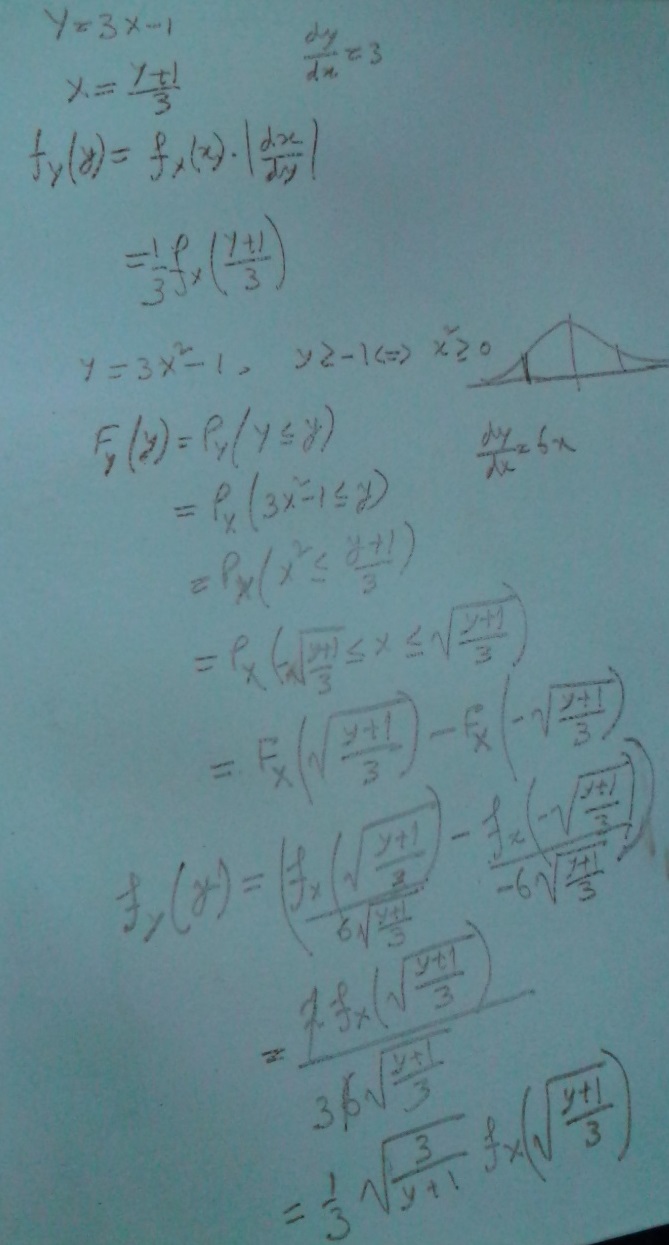 Y = 3x - 1
dy/dx = 3
x = (y+1)/3
f_Y(y) = f_X(x) · |dx/dy|
= 1/3 f_X((y+1)/3)
Y = 3x² - 1, y ≥ -1 <=> x² ≥ 0
F_Y(y) = P_Y(Y ≤ y)
dy/dx = 6x
= P_X(3x² - 1 ≤ y)
= P_X(x² ≤ (y+1)/3)
= P_X(-√((y+1)/3) ≤ x ≤ √((y+1)/3))
= F_X(√((y+1)/3)) - F_X(-√((y+1)/3))
f_Y(y) = (f_X(√((y+1)/3)) / 6√((y+1)/3) - f_X(-√((y+1)/3)) / -6√((y+1)/3))
= 2 f_X(√((y+1)/3)) / 3 6√((y+1)/3)
= 1/3 √(3/(y+1)) f_X(√((y+1)/3))